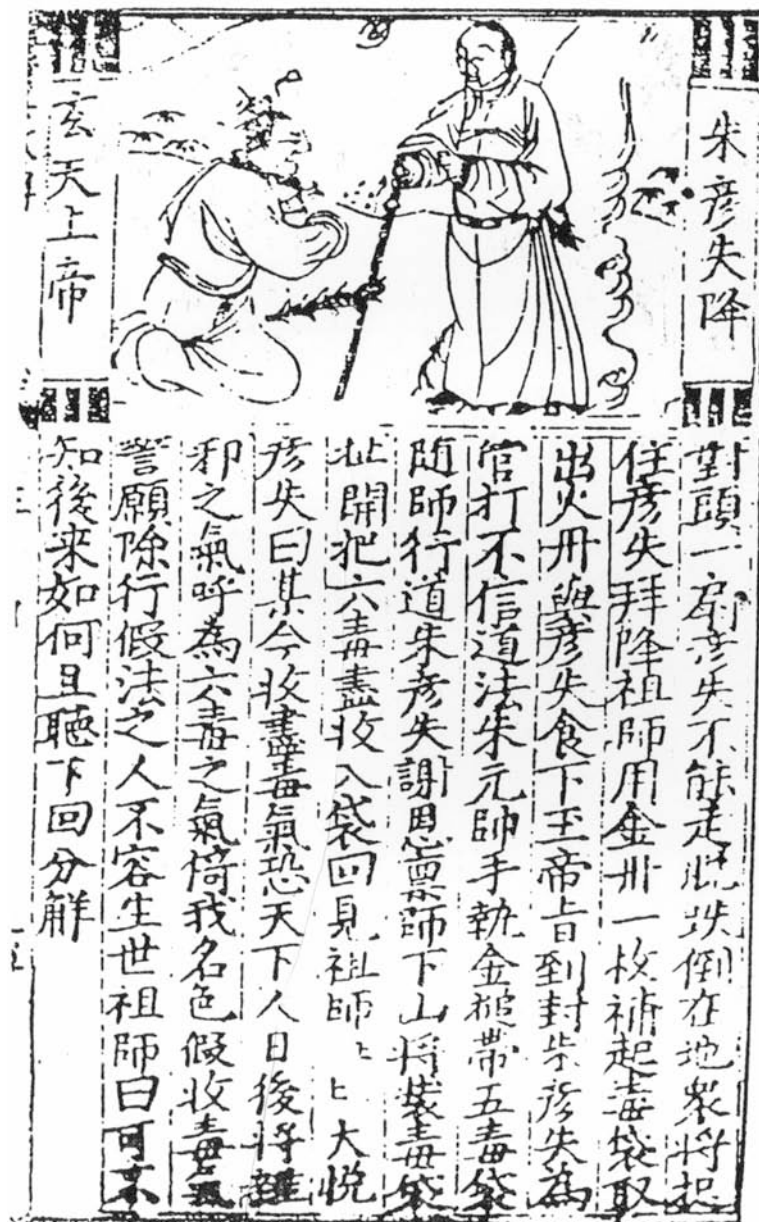 朱彦失降
玄天上帝
對頭一扇彦失不能走脱跌倒在地衆將捉
住彦失拜降祖師用金丹一枚補起毒袋取
出火丹與彦失食下玉帝旨到封朱彦失為
管打不信道法朱元帥手執金搥帶五毒袋
随師行道朱彦失謝恩禀師下山將裝毒袋
扯開把六毒盡收入袋回見祖師〻〻大悦
彦失曰某今收盡毒氣恐天下人日後將
邪之氣呼為六毒之氣倚我名色假收毒氣
誓願除行假法之人不容生世祖師曰可未
知後来如何且聴下回分解